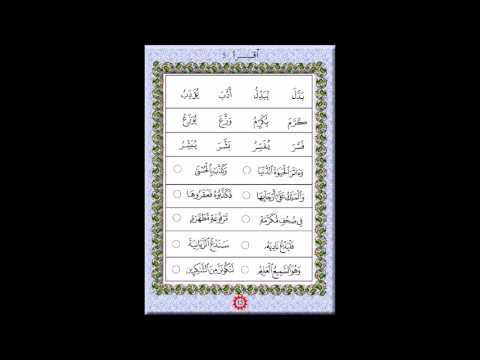 اقرأ
بَدَّلَ يُبَدِّلُ أَدَّبَ يُؤَدِّبُ
كَرَّمَ يُكَرِّمُ وَزَّعَ يُوَزِّعُ
فَسَّرَ يُفَسِّرُ بَشَّرَ يُبَشِّرُ
وَءَاثَرَ ٱلْحَيَوٰةَ ٱلدُّنْيَا وَكَذَّبَ بِٱلْحُسْنَىٰ
وَٱلْمَلَكُ عَلَىٰٓ أَرْجَآئِهَا فَكَذَّبُوهُ فَعَقَرُوهَا
فِى صُحُفٍ مُّكَرَّمَةٍ مَّرْفُوعَةٍ مُّطَهَّرَةٍ
فَلْيَدْعُ نَادِيَهُۥ سَنَدْعُ ٱلزَّبَانِيَةَ
وَهُوَ ٱلسَّمِيعُ ٱلْعَلِيمُ لَنَكُونَنَّ مِنَ ٱلشَّٰكِرِينَ